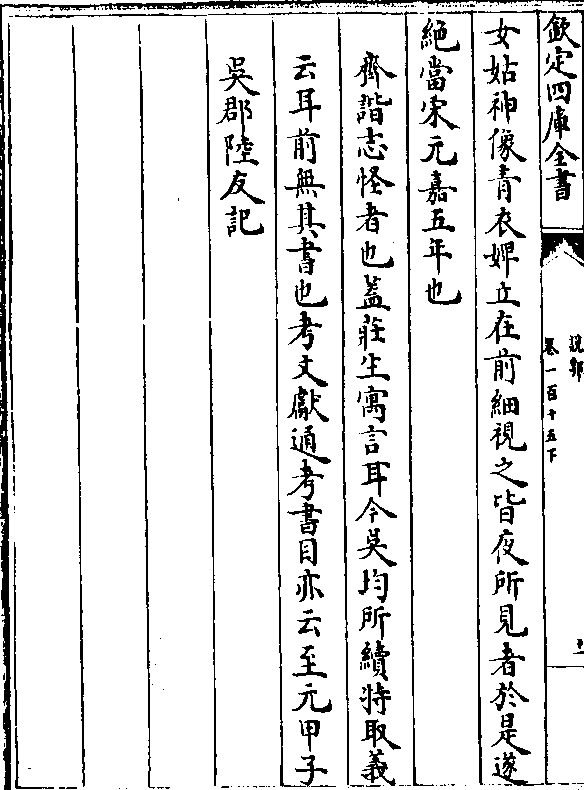 欽定四庫全書
說郛
卷一百十五下
女姑神像青衣婢立在前細視之皆夜所見者於是遂
絶當宋元嘉五年也
齊諧志怪者也蓋莊生寓言耳今吳均所續特取義
云耳前無其書也考文獻通考書目亦云至元甲子
吳郡陸友記